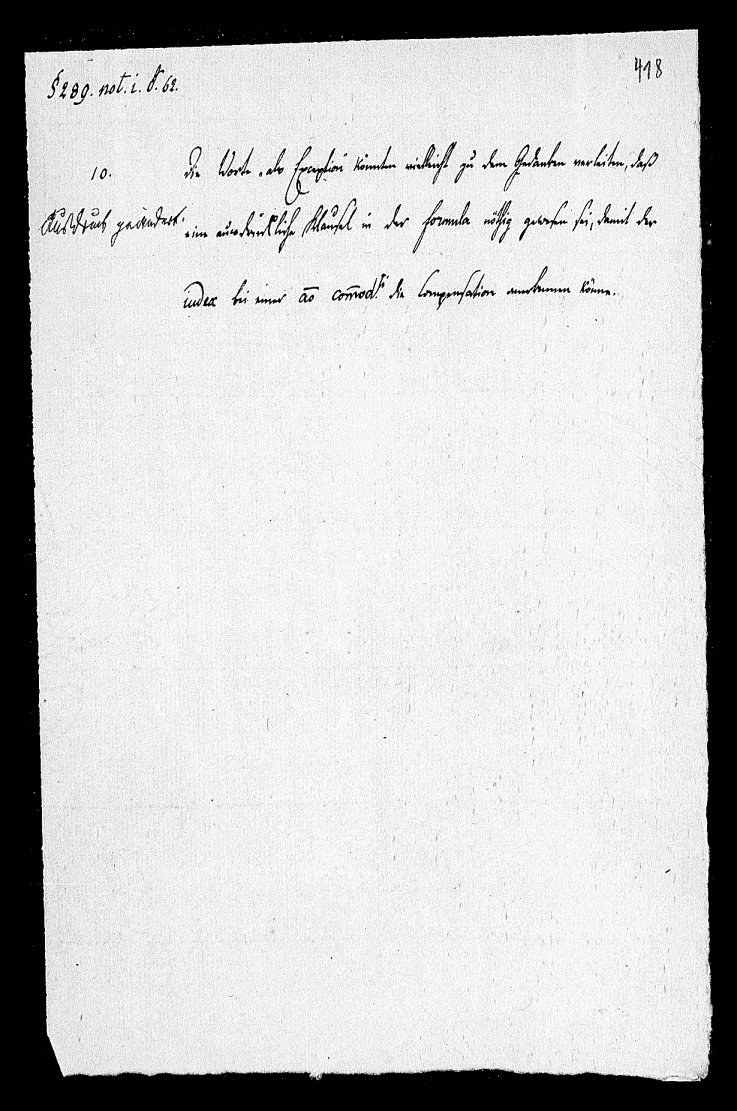 418
§ 289. not. i. S. 62.
10.
Ausdruck geändert.
Die Worte „als Exception könnten vielleicht zu dem Gedanken verleiten, daß
eine ausdrückliche Klausel in der formula nöthig gewesen sei, damit der
iudex bei einer ao com̄od.ti die Compensation anerkennen könne.